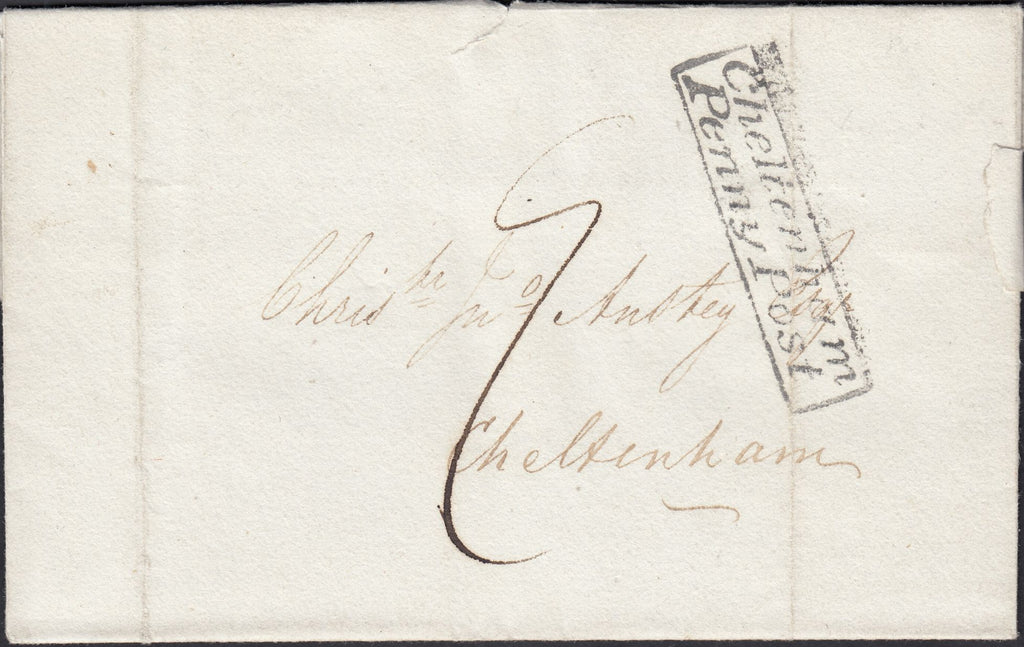 Cheltenham
Penny Post
Chrisr Jno Anstey Esqr
Cheltenham